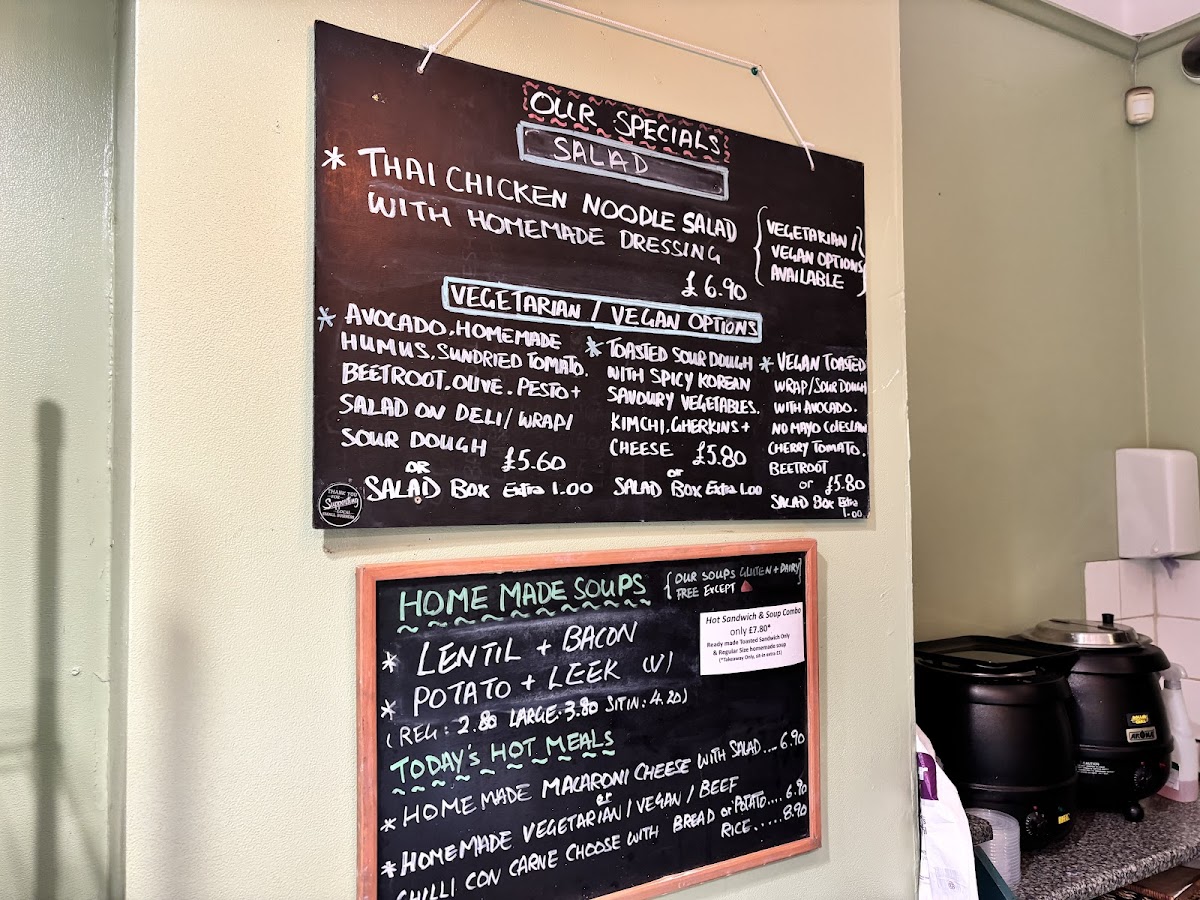 OUR SPECIALS
SALAD
* THAI CHICKEN NOODLE SALAD
WITH HOMEMADE DRESSING
£6.90
{VEGETARIAN /
VEGAN OPTIONS
AVAILABLE}
VEGETARIAN / VEGAN OPTIONS
* AVOCADO, HOMEMADE
HUMUS, SUNDRIED TOMATO.
BEETROOT. OLIVE. PESTO +
SALAD ON DELI / WRAP /
SOUR DOUGH £5.60
OR
SALAD BOX Extra 1.00
* TOASTED SOUR DOUGH
WITH SPICY KOREAN
SAVOURY VEGETABLES.
KIMCHI, GHERKINS +
CHEESE £5.80
or
SALAD BOX Extra 1.00
* VEGAN TOASTED
WRAP/SOUR DOUGH
WITH AVOCADO.
NO MAYO COLESLAW
CHERRY TOMATO.
BEETROOT
or £5.80
SALAD BOX Extra
1.00
THANK YOU
FOR
Supporting
LOCAL
SMALL BUSINESS
HOME MADE SOUPS
{OUR SOUPS GLUTEN + DAIRY}
FREE EXCEPT
* LENTIL + BACON
* POTATO + LEEK (V)
(REG: 2.80 LARGE. 3.80 SIT IN. 4.20)
Hot Sandwich & Soup Combo
only £7.80*
Ready made Toasted Sandwich Only
& Regular Size homemade soup
(*Takeaway Only, sit-in extra £1)
TODAY'S HOT MEALS
* HOME MADE MACARONI CHEESE WITH SALAD.... 6.90
or
* HOMEMADE VEGETARIAN / VEGAN / BEEF
CHILLI CON CARNE CHOOSE WITH BREAD or POTATO.... 6.90
RICE..... 8.90
CAUTION